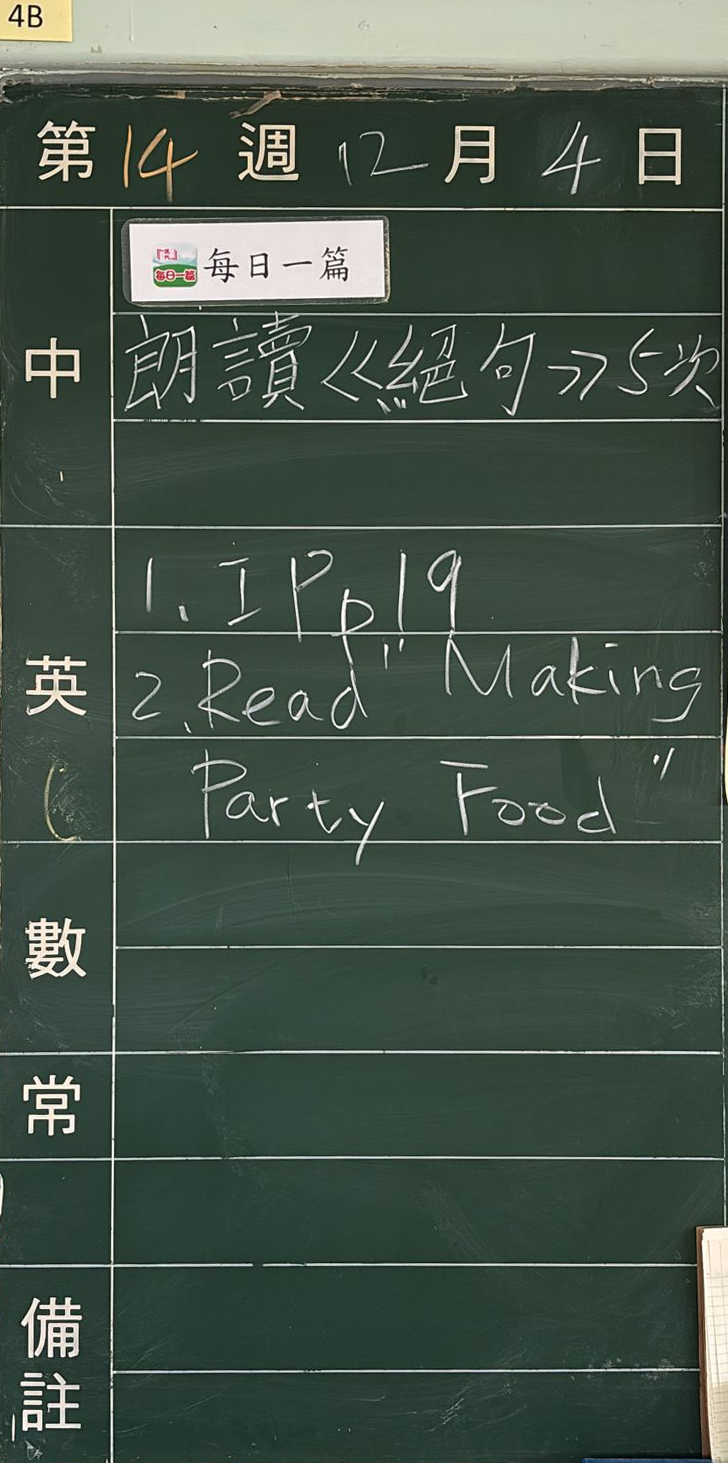 4B
第14週12月4日
每日一篇 每日一篇
中
朗讀《絕句》5次
英
1. IP p19
2. Read "Making
Party Food"
數
常
備
註